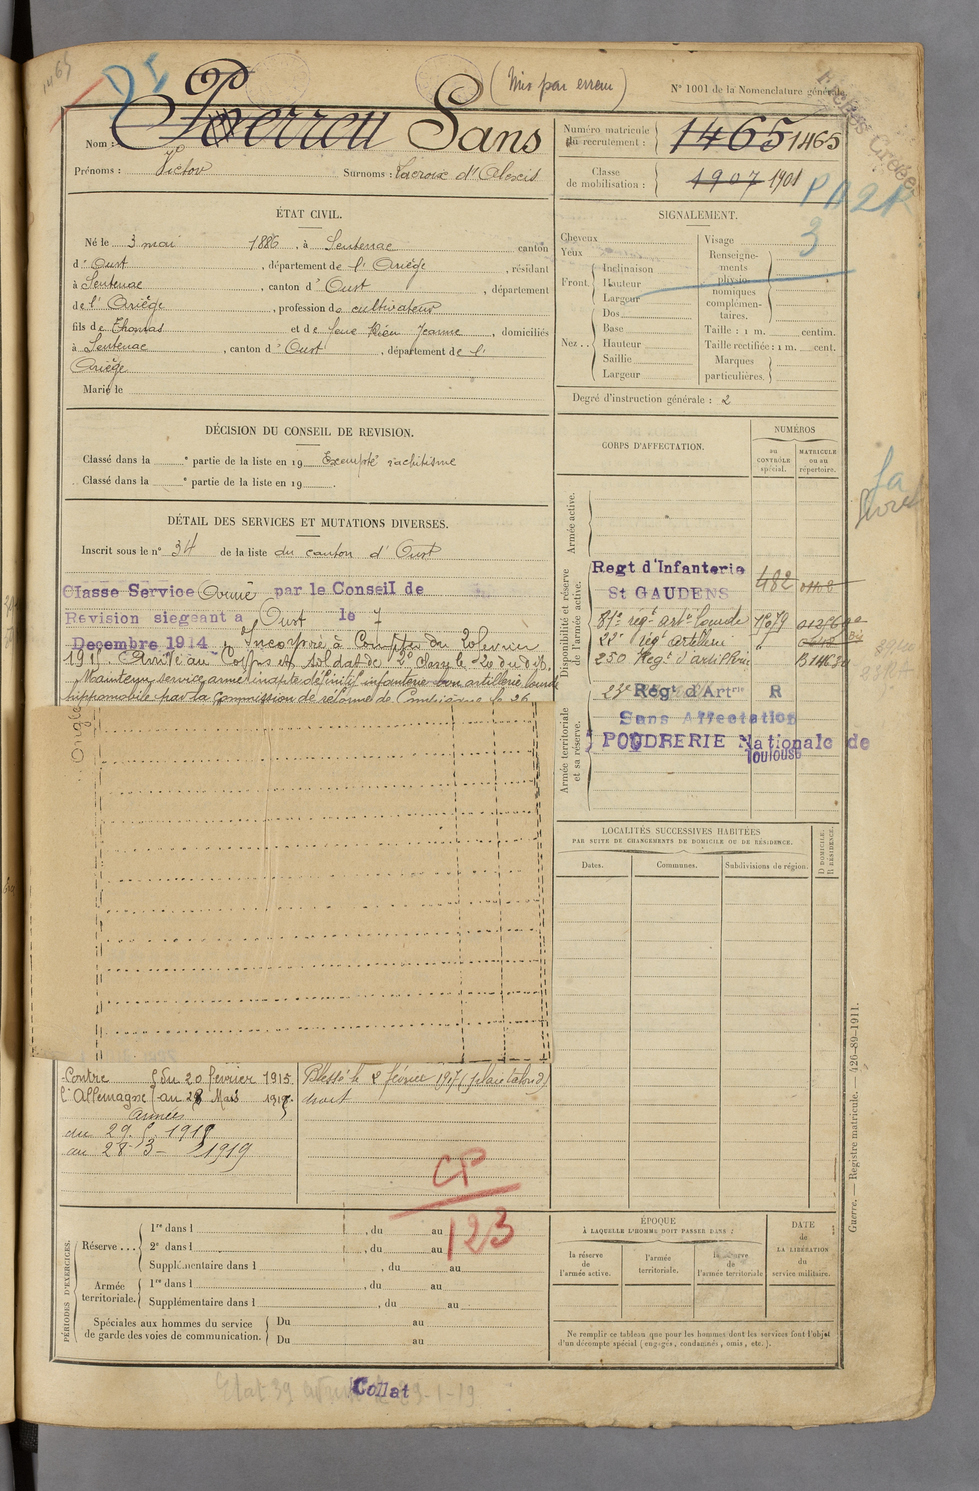 1465
(Mis par erreur)
N° 1001 de la Nomenclature générale
Nom : Perreu Sans
Prénoms : Victor Surnoms : Lacroix d'Alexis
Numéro matricule du recrutement : 1465 1465
Classe de mobilisation : 1907 1901
PA2R
3
ÉTAT CIVIL.
Né le 3 mai 1886, à Sentenac canton
d' Oust, département de l'Ariège, résidant
à Sentenac, canton d' Oust, département
de l'Ariège, profession de cultivateur
fils de Thomas et de feue Jeanne, domiciliés
à Sentenac, canton d' Oust, département de l'
Ariège
Marié le
SIGNALEMENT.
Cheveux
Yeux
Front. Inclinaison
Hauteur
Largeur
Nez .. Dos
Base
Hauteur
Saillie
Largeur
Visage
Renseigne-
ments
physio-
nomiques
complémen-
taires.
Taille : 1 m. centim.
Taille rectifiée : 1 m. cent.
Marques
particulières.
Degré d'instruction générale : 2
DÉCISION DU CONSEIL DE REVISION.
Classé dans la e partie de la liste en 19 Exempté rachitisme
Classé dans la e partie de la liste en 19 .
DÉTAIL DES SERVICES ET MUTATIONS DIVERSES.
Inscrit sous le n° 34 de la liste du canton d' Oust
Classe Service Armé par le Conseil de
Revision siegeant a Oust le 7
Decembre 1914. Incorporé à Compter du 20 février
1915. Arrivé au Corps et soldat de 2e classe le 20 du dit.
Maintenu service armé inapte définitif infanterie bon artillerie lourde
hippomobile par la Commission de réforme de Compiègne le 26
Onglet
CORPS D'AFFECTATION.
NUMÉROS
au
CONTRÔLE
spécial.
MATRICULE
ou au
répertoire.
Armée active.
Disponibilité et réserve
de l'armée active.
Regt d'Infanterie
St GAUDENS 482
81e régt arte lourde
22e régt artillerie
250 Régt d'artillerie
Armée territoriale
et sa réserve.
23e Régt d'Artrie R
Sans Affectation
POUDRERIE Nationale de
Toulouse
LOCALITÉS SUCCESSIVES HABITÉES
PAR SUITE DE CHANGEMENTS DE DOMICILE OU DE RÉSIDENCE.
Dates.
Communes.
Subdivisions de région.
D DOMICILE.
R RÉSIDENCE.
Contre du 20 février 1915
l'Allemagne au 28 Mars 1919
Armées
du 29. 5. 1918
au 28-3-1919
Blessé le 2 février 1917
droit
CP
123
PÉRIODES D'EXERCICES.
Réserve ... 1re dans l , du au
2e dans l , du au
Supplémentaire dans l , du au
Armée
territoriale. 1re dans l , du au
Supplémentaire dans l , du au
Spéciales aux hommes du service
de garde des voies de communication. Du au
Du au
ÉPOQUE
À LAQUELLE L'HOMME DOIT PASSER DANS :
la réserve
de
l'armée active.
l'armée
territoriale.
la réserve
de
l'armée territoriale
DATE
de
LA LIBÉRATION
du
service militaire.
Ne remplir ce tableau que pour les hommes dont les services font l'objet
d'un décompte spécial (engagés, condamnés, omis, etc.).
Guerre. — Registre matricule. — 426-89-1911.
Collat